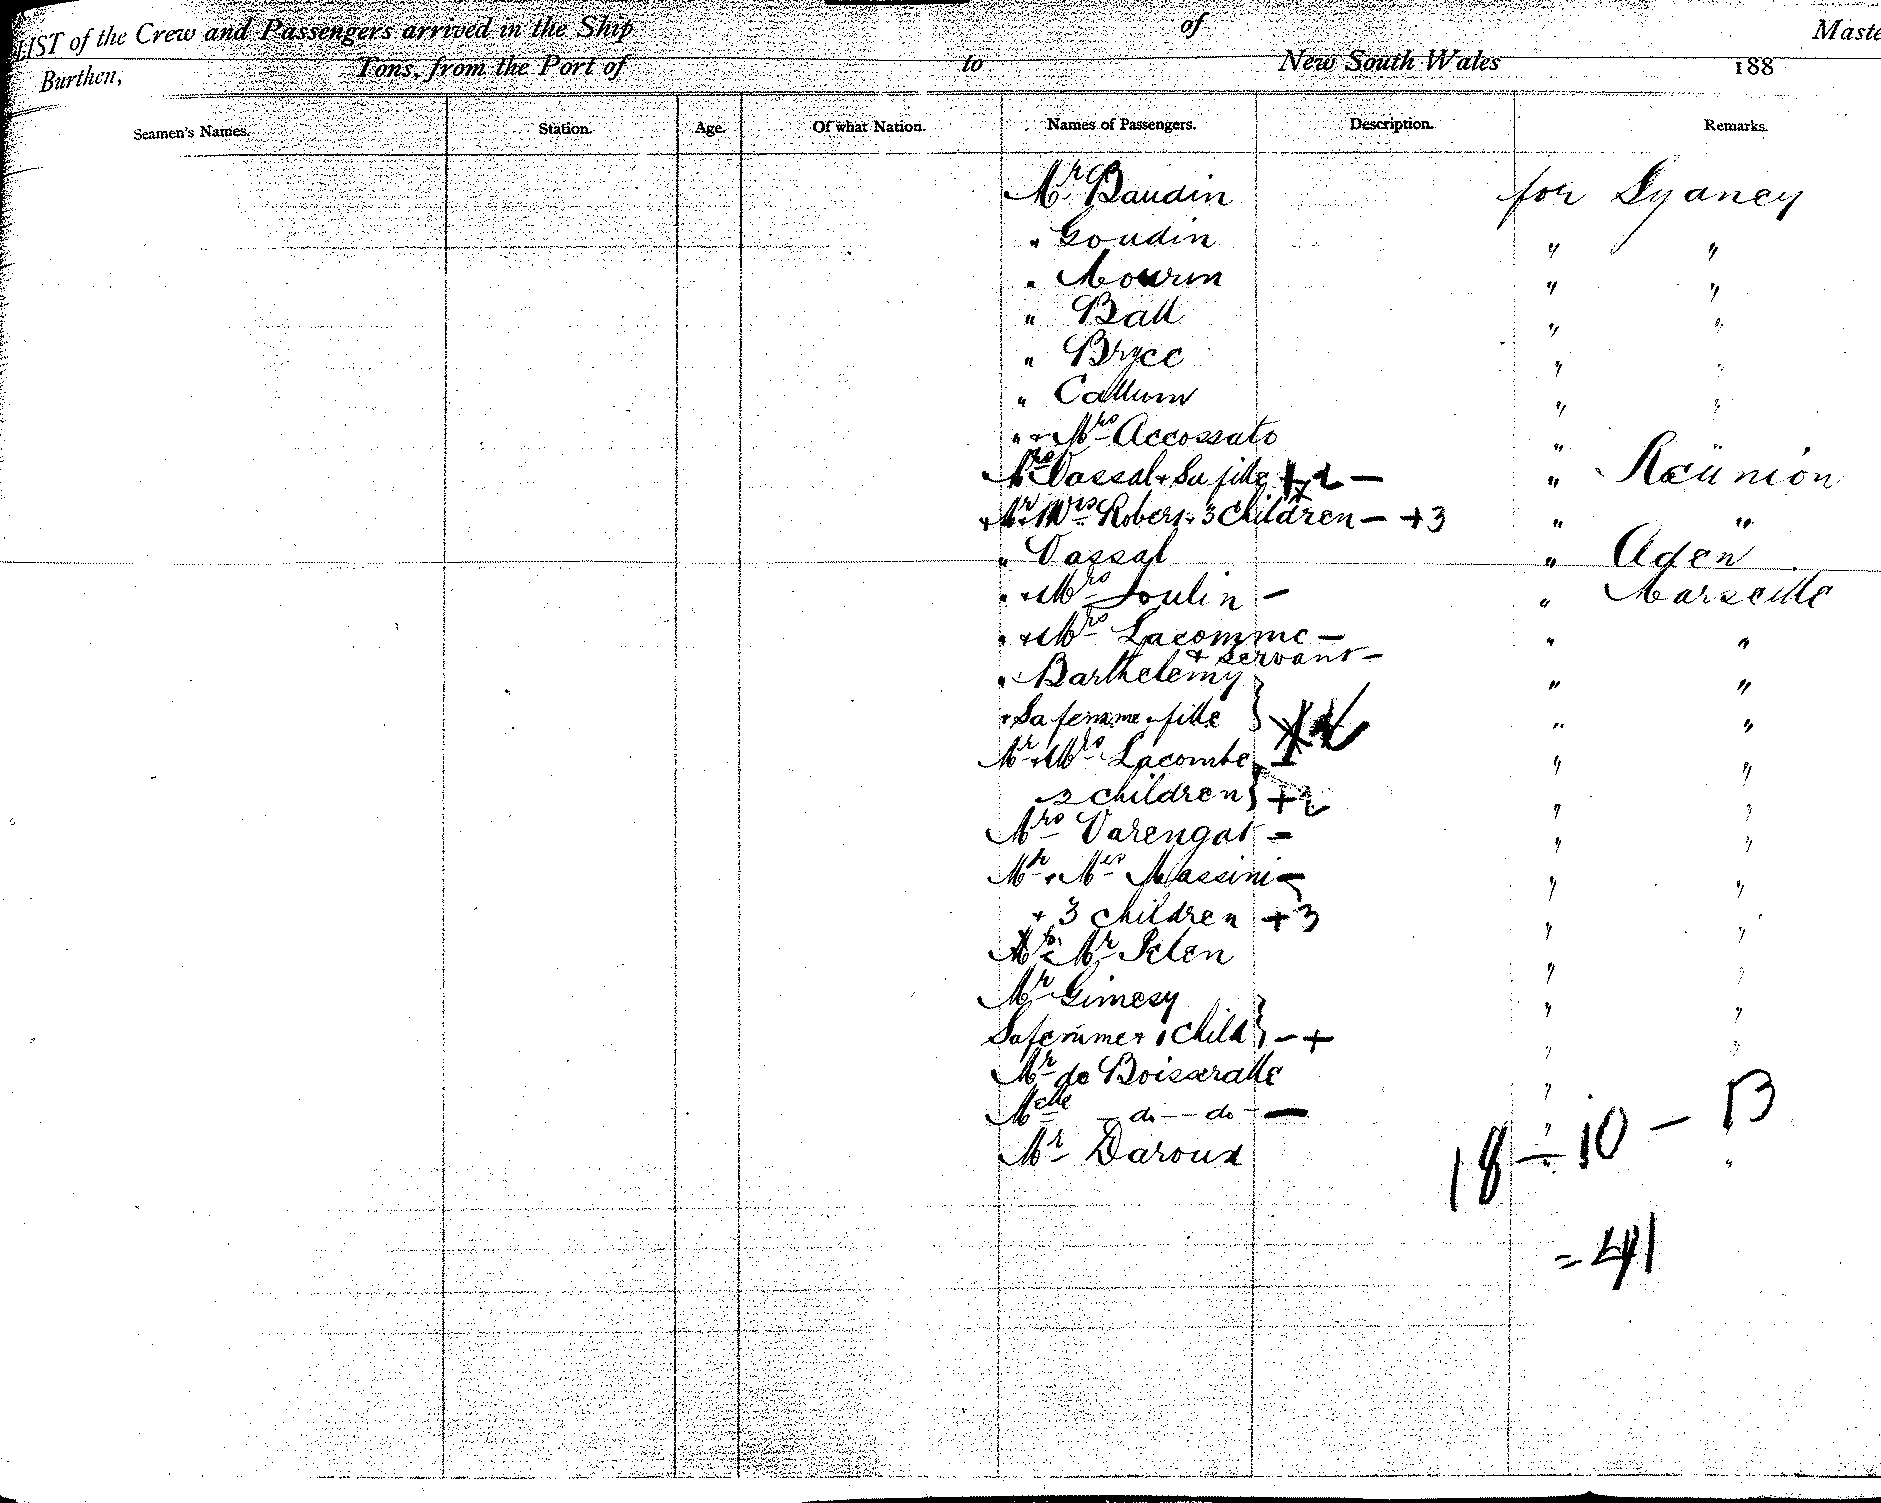 LIST of the Crew and Passengers arrived in the Ship of Maste
Burthen, Tons, from the Port of to New South Wales 188
Seamen's Names. Station. Age. Of what Nation. Names of Passengers. Description. Remarks.
Mr Baudin for Sydney
" Goudin " "
" Mourin " "
" Ball " "
" Bryce " "
" Callum " "
" + Mrs Accossato "
Mrs Vassal + Sa fille + 2 — " Reünion
+ Mr + Mrs Robert + 3 Children — +3 " "
" Vassal " Aden
" + Mrs Soulin — " Marseille
" + Mrs Lacomme — " "
+ servant —
" Barthelemy " "
+ Sa femme + fille } " "
Mr + Mrs Lacombe — " "
+ 2 children } +2 " "
Mrs Varengot — " "
Mr + Mrs Massini — " "
+ 3 children +3 " "
Mr Pelen " "
Mr Gimesy " "
Sa femme + 1 child } — + " "
Mr de Boisseralle "
Melle — do — do — — "
Mr Daroux "
18 — 10 — 13
= 41